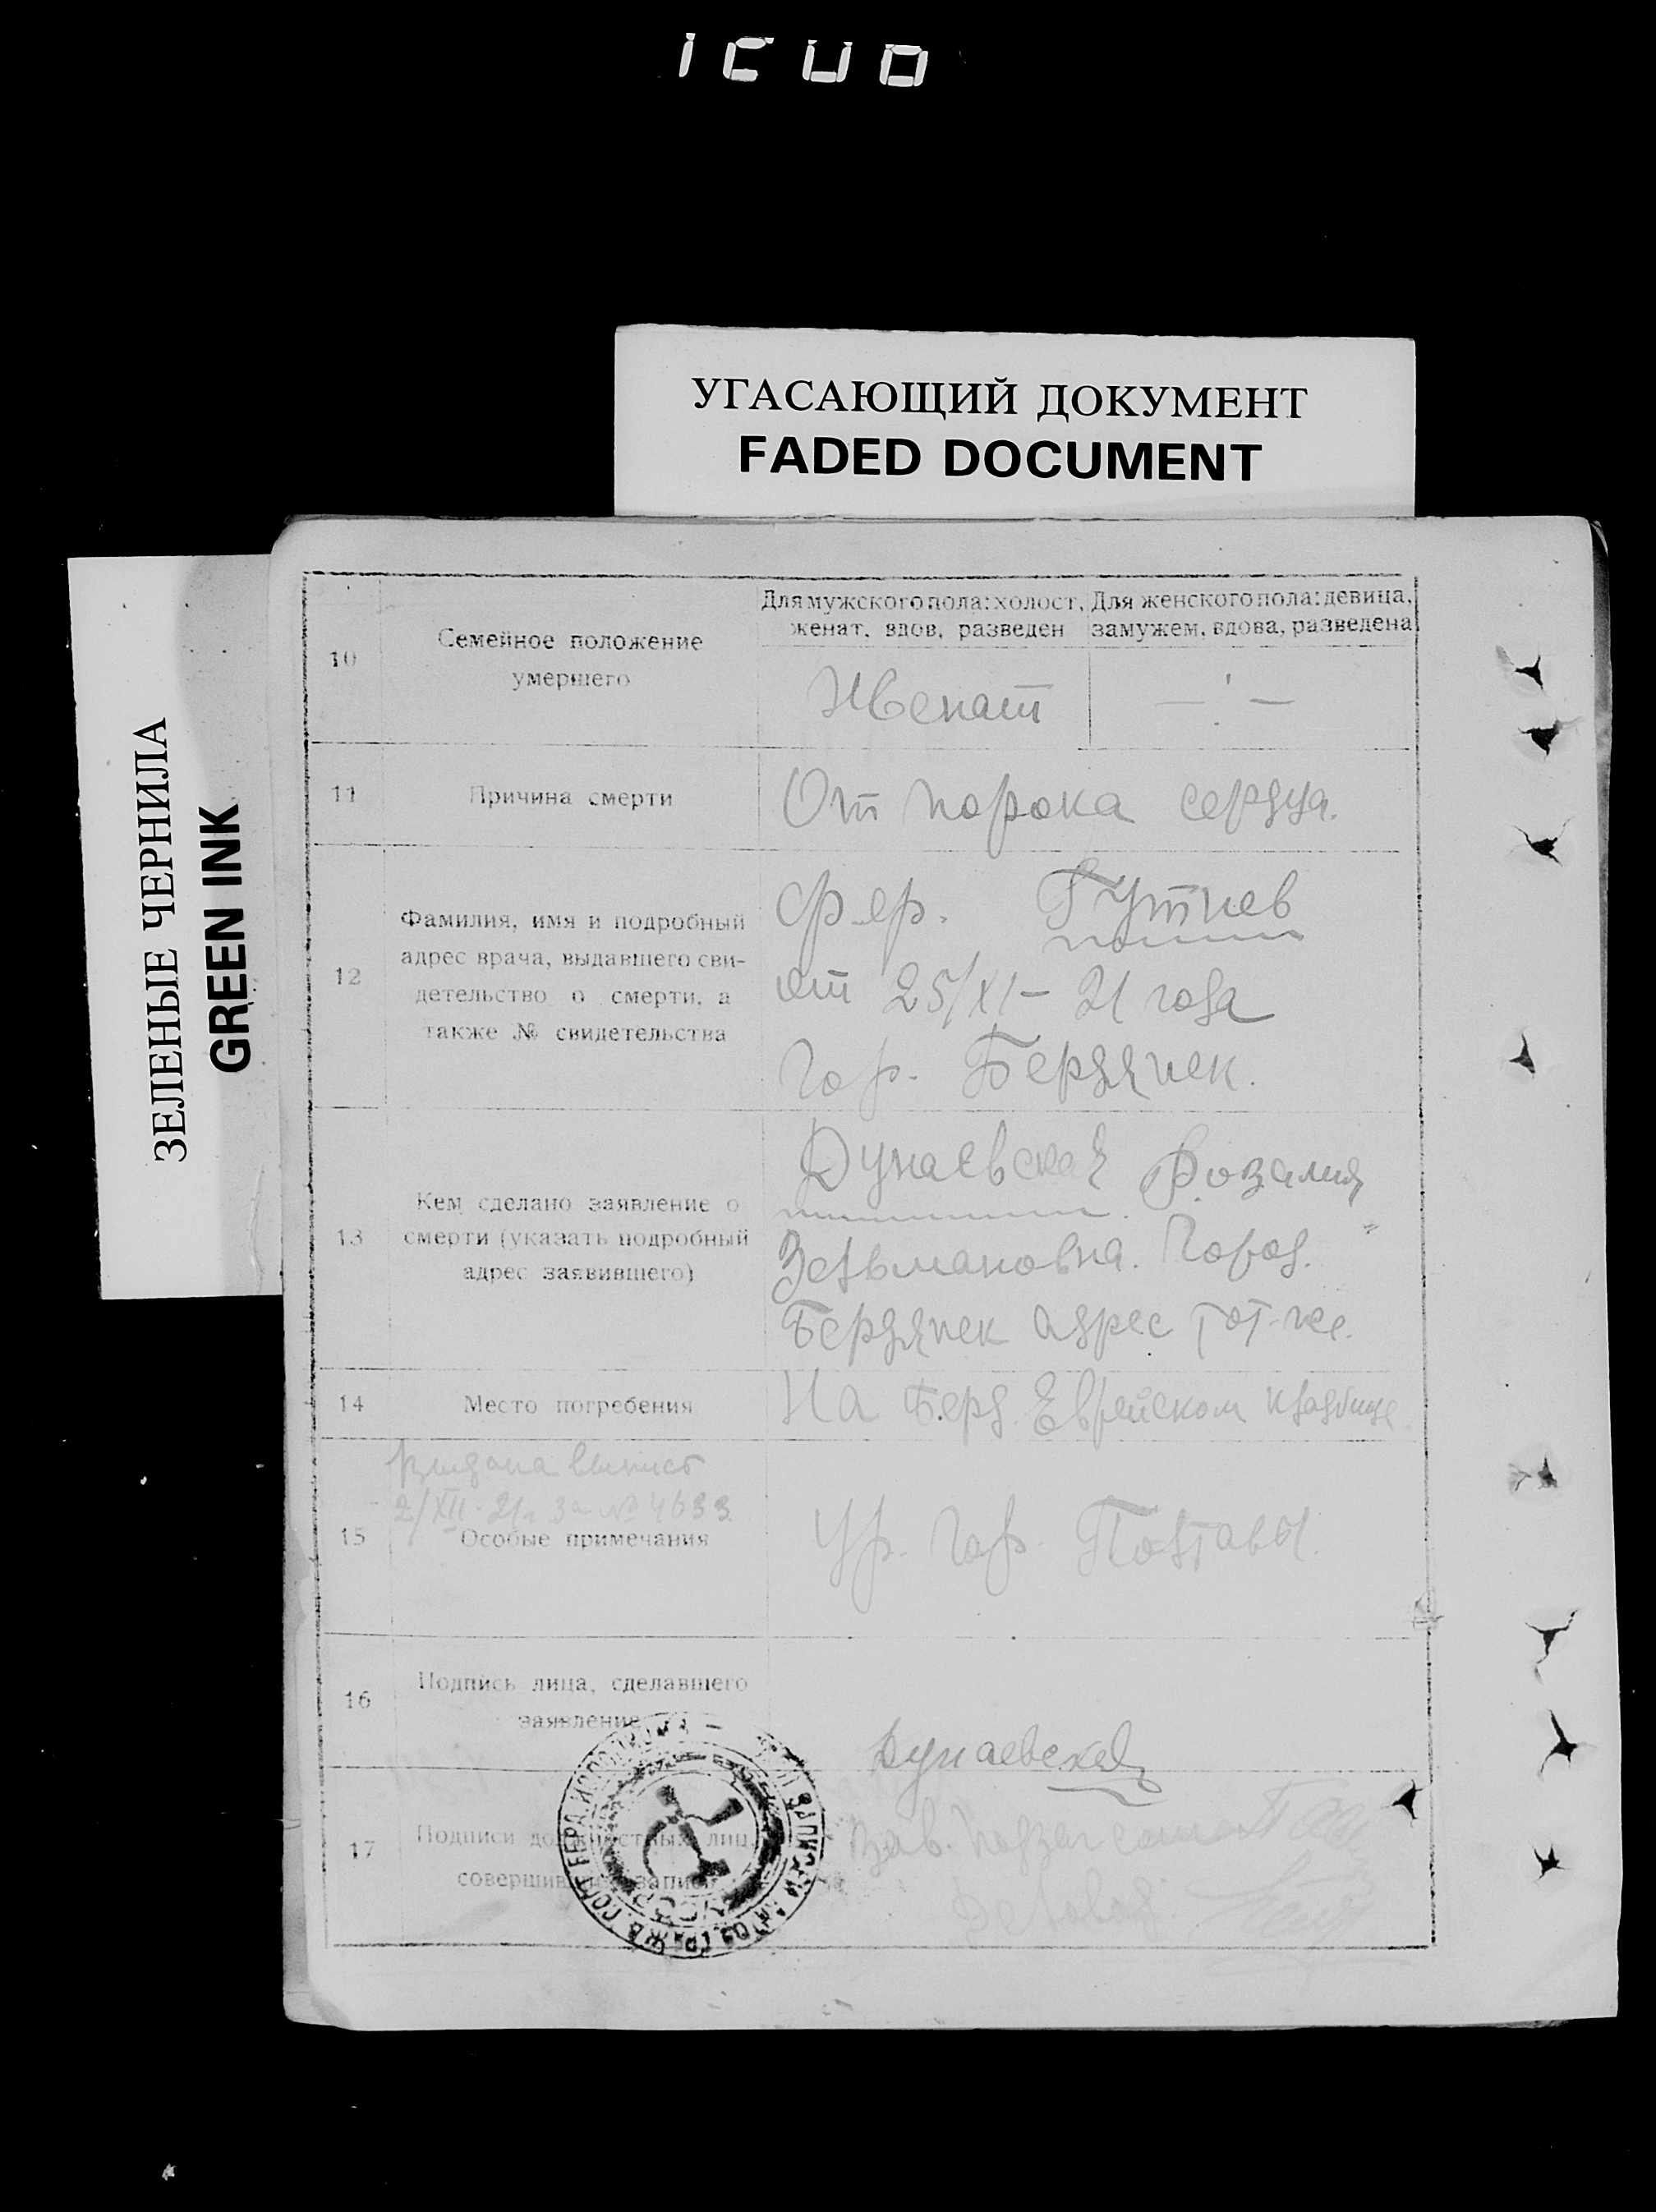 УГАСАЮЩИЙ ДОКУМЕНТ
FADED DOCUMENT
ЗЕЛЕНЫЕ ЧЕРНИЛА
GREEN INK
10
Семейное положение
умершего
Для мужского пола: холост,
женат, вдов, разведен
Для женского пола: девица,
замужем, вдова, разведена
Женат
11
Причина смерти
От порока сердца.
12
Фамилия, имя и подробный
адрес врача, выдавшего сви-
детельство о смерти, а
также № свидетельства
от 25/XI – 21 года
Гор. Бердянск.
13
Кем сделано заявление о
смерти (указать подробный
адрес заявившего)
Дунаевская Розалия
Зельмановна. Город.
Бердянск адрес тот-же.
14
Место погребения
На Берд. Еврейском кладбище
15
Выдана выпись
2/XII - 21г. За №
Особые примечания
Ур. Гор. Полтавы.
16
Подпись лица, сделавшего
заявление
Дунаевская
17
Подписи должностных лиц,
совершивших запись
Зав.